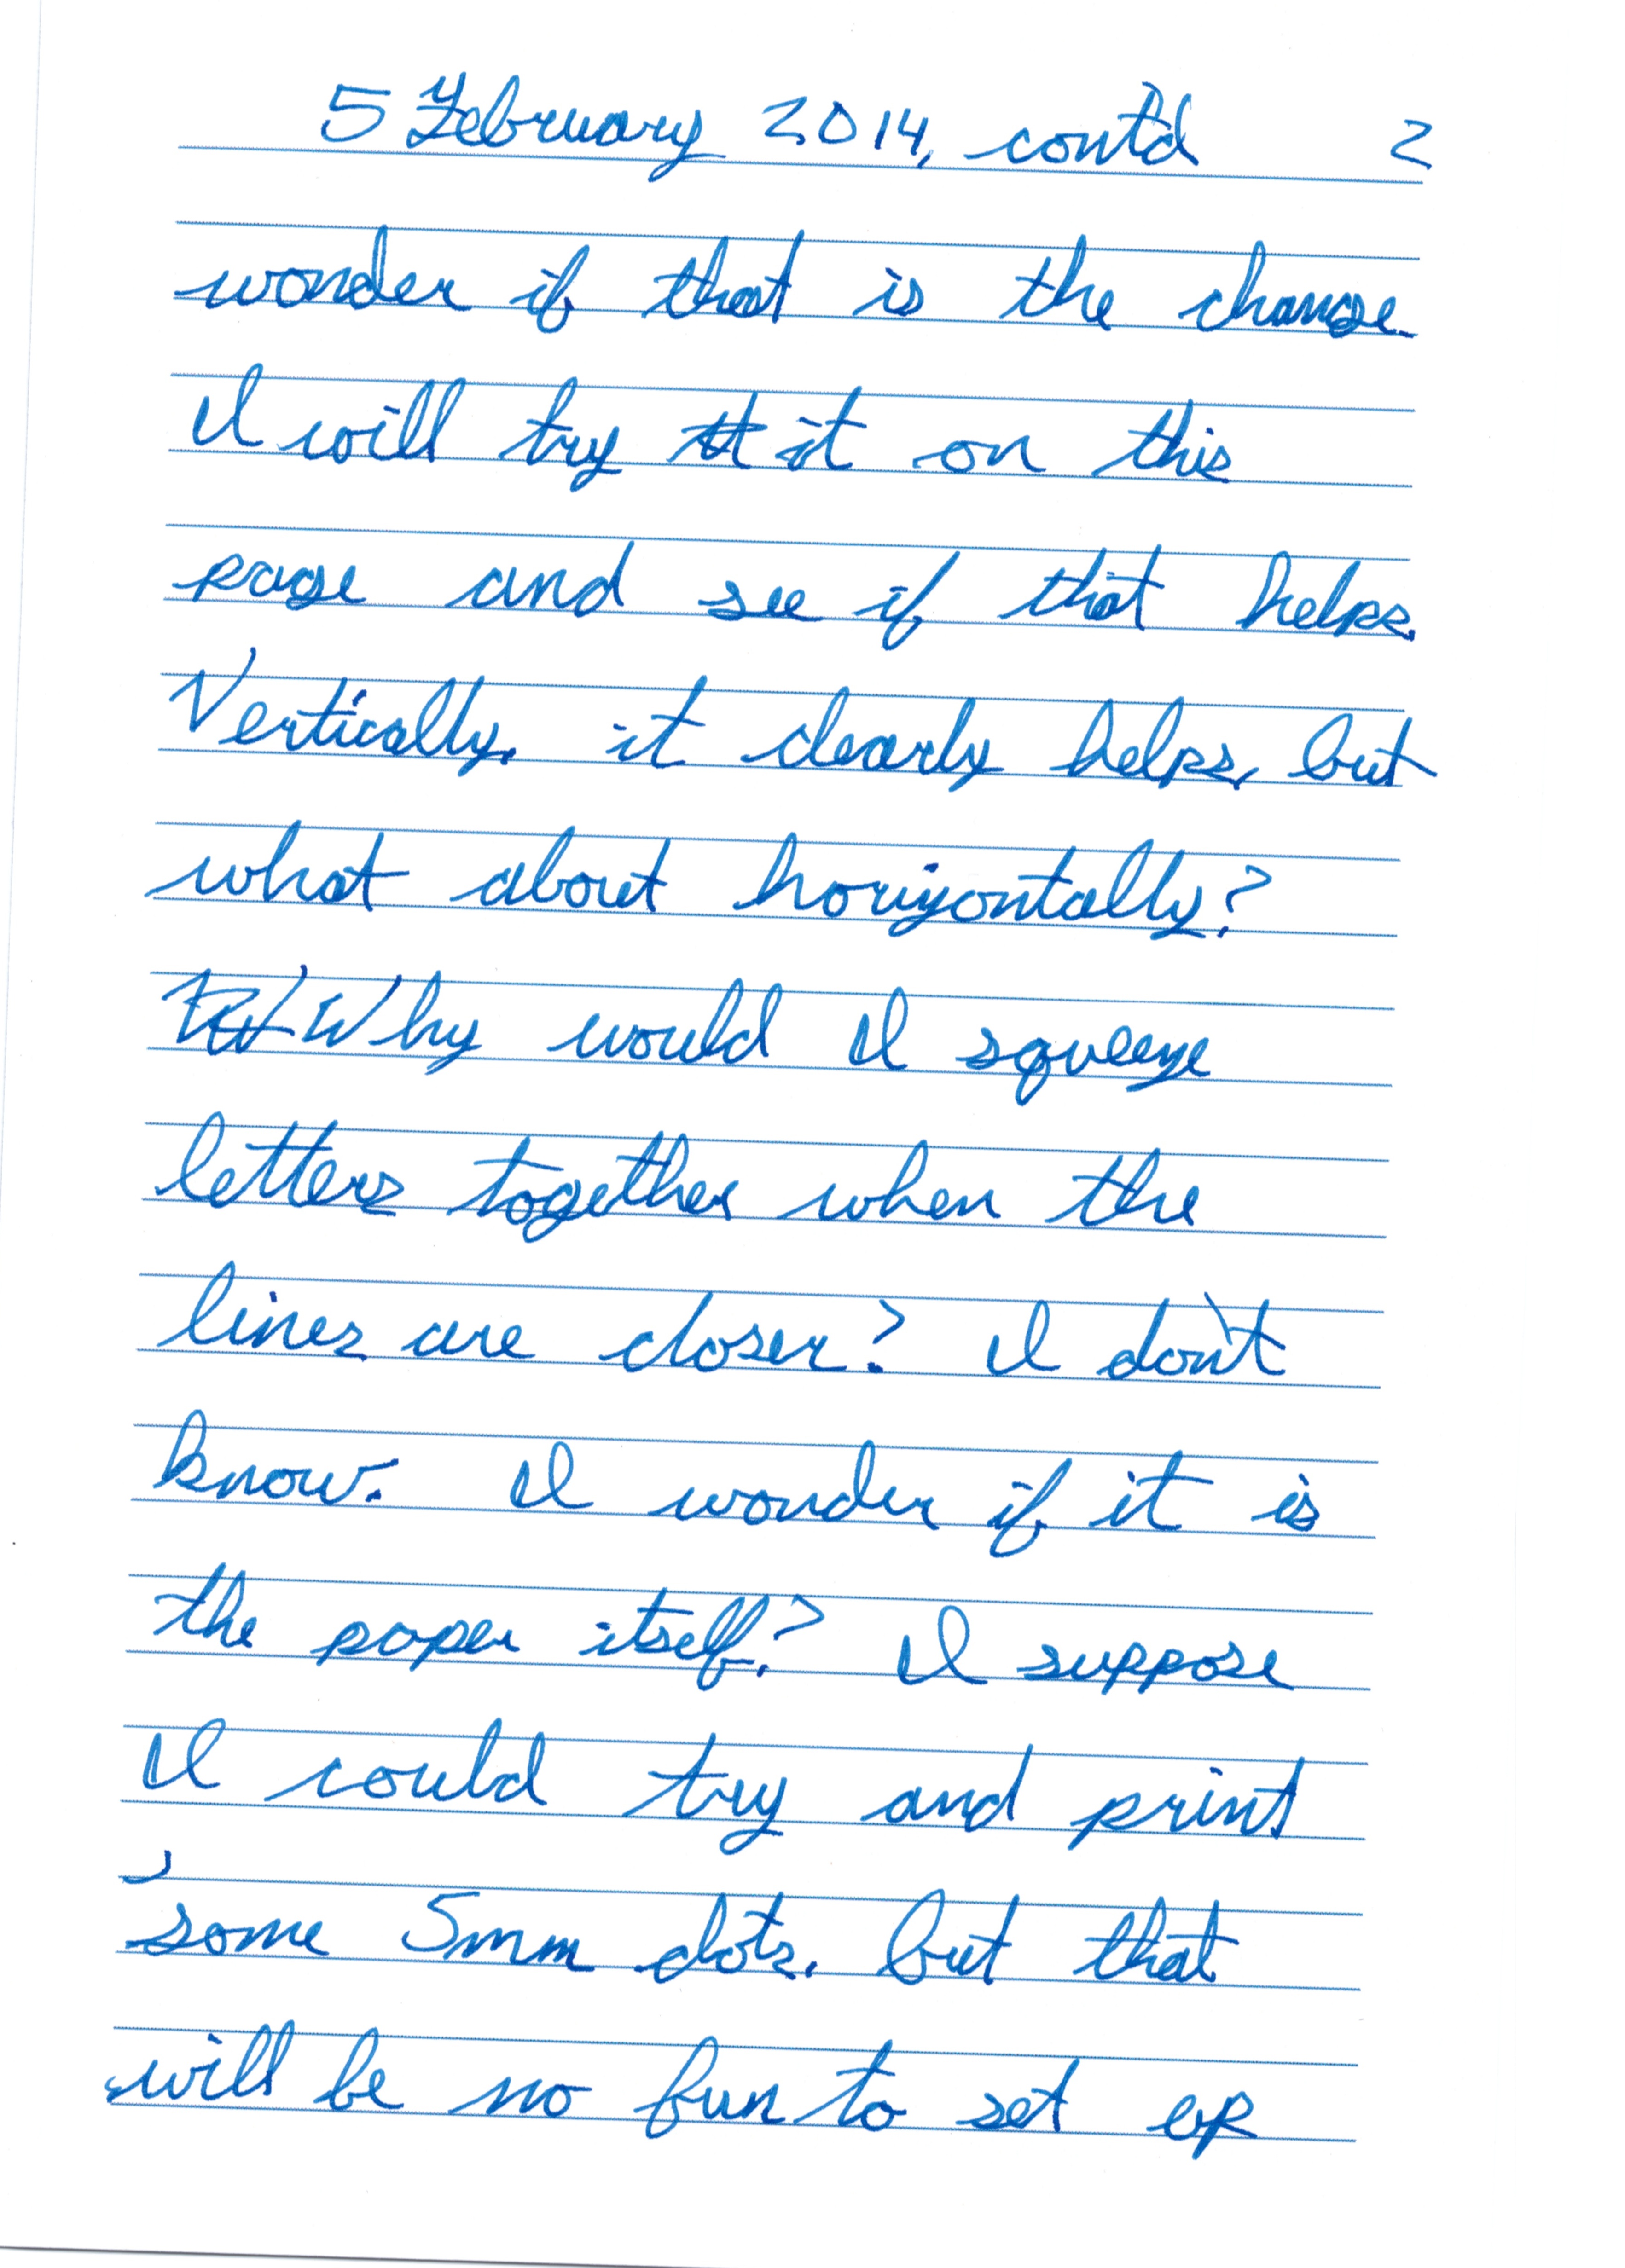 5 February 2014, cont'd 2
wonder if that is the change.
I will try it on this
page and see if that helps.
Vertically, it clearly helps, but
what about horizontally?
Why would I squeeze
letters together when the
lines are closer? I don't
know. I wonder if it is
the paper itself? I suppose
I could try and print
some 5mm dots. but that
will be no fun to set up